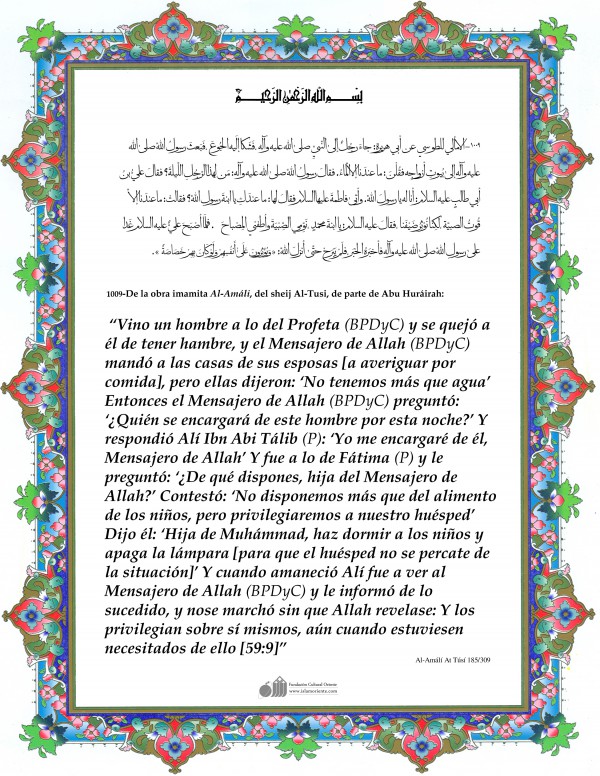 بسم الله الرحمن الرحيم
١٠٠٩- الأمالي للطوسي عن أبي هريرة: جاء رجل إلى النبي صلى الله عليه وآله فشكا إليه الجوع، فبعث رسول الله صلى الله
عليه وآله إلى بيوت أزواجه فقلن: ما عندنا إلا الماء. فقال رسول الله صلى الله عليه وآله: من لهذا الرجل الليلة؟ فقال علي بن
أبي طالب عليه السلام: أنا له يا رسول الله. وأتى فاطمة عليها السلام فقال لها: ما عندك يا ابنة رسول الله؟ فقالت: ما عندنا إلا
قوت الصبية لكنا نؤثر ضيفنا. فقال عليه السلام: يا ابنة محمد، نومي الصبية وأطفئي المصباح. فلما أصبح علي عليه السلام غدا
على رسول الله صلى الله عليه وآله فأخبره الخبر فلم يبرح حتى أنزل الله: «ويؤثرون على أنفسهم ولو كان بهم خصاصة».
1009-De la obra imamita Al-Amâlí, del sheij Al-Tusi, de parte de Abu Huráirah:
“Vino un hombre a lo del Profeta (BPDyC) y se quejó a
él de tener hambre, y el Mensajero de Allah (BPDyC)
mandó a las casas de sus esposas [a averiguar por
comida], pero ellas dijeron: ‘No tenemos más que agua’
Entonces el Mensajero de Allah (BPDyC) preguntó:
‘¿Quién se encargará de este hombre por esta noche?’ Y
respondió Alí Ibn Abi Tálib (P): ‘Yo me encargaré de él,
Mensajero de Allah’ Y fue a lo de Fátima (P) y le
preguntó: ‘¿De qué dispones, hija del Mensajero de
Allah?’ Contestó: ‘No disponemos más que del alimento
de los niños, pero privilegiaremos a nuestro huésped’
Dijo él: ‘Hija de Muhámmad, haz dormir a los niños y
apaga la lámpara [para que el huésped no se percate de
la situación]’ Y cuando amaneció Alí fue a ver al
Mensajero de Allah (BPDyC) y le informó de lo
sucedido, y nose marchó sin que Allah revelase: Y los
privilegian sobre sí mismos, aún cuando estuviesen
necesitados de ello [59:9]”
Al-Amâlí At Túsí 185/309
Fundación Cultural Oriente
www.islamoriente.com